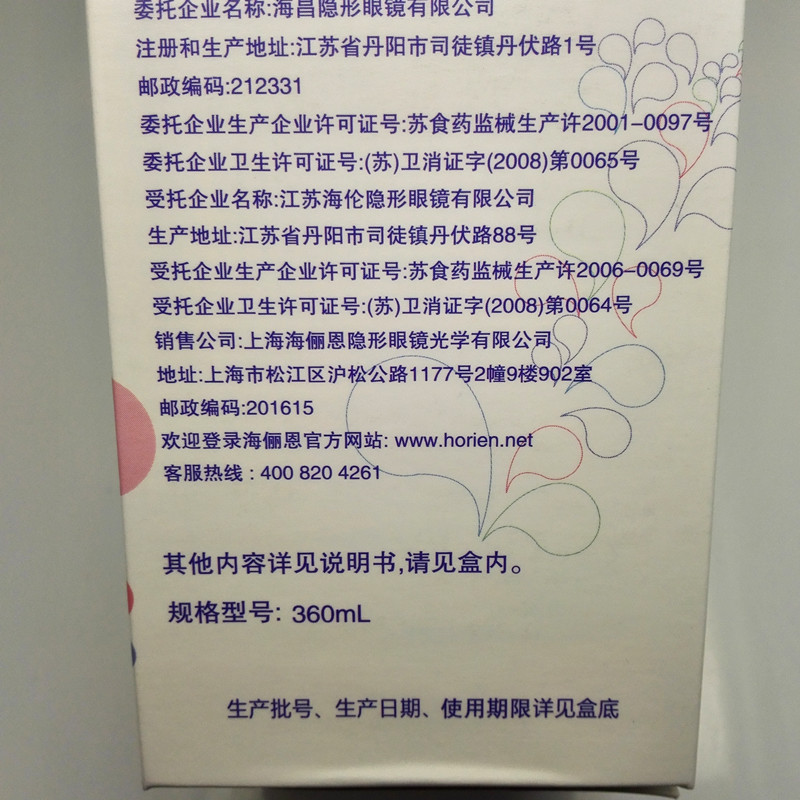 委托企业名称:海昌隐形眼镜有限公司
注册和生产地址:江苏省丹阳市司徒镇丹伏路1号
邮政编码:212331
委托企业生产企业许可证号:苏食药监械生产许2001-0097号
委托企业卫生许可证号:(苏)卫消证字(2008)第0065号
受托企业名称:江苏海伦隐形眼镜有限公司
生产地址:江苏省丹阳市司徒镇丹伏路88号
受托企业生产企业许可证号:苏食药监械生产许2006-0069号
受托企业卫生许可证号:(苏)卫消证字(2008)第0064号
销售公司:上海海俪恩隐形眼镜光学有限公司
地址:上海市松江区沪松公路1177号2幢9楼902室
邮政编码:201615
欢迎登录海俪恩官方网站: www.horien.net
客服热线：400 820 4261
其他内容详见说明书,请见盒内。
规格型号: 360mL
生产批号、生产日期、使用期限详见盒底